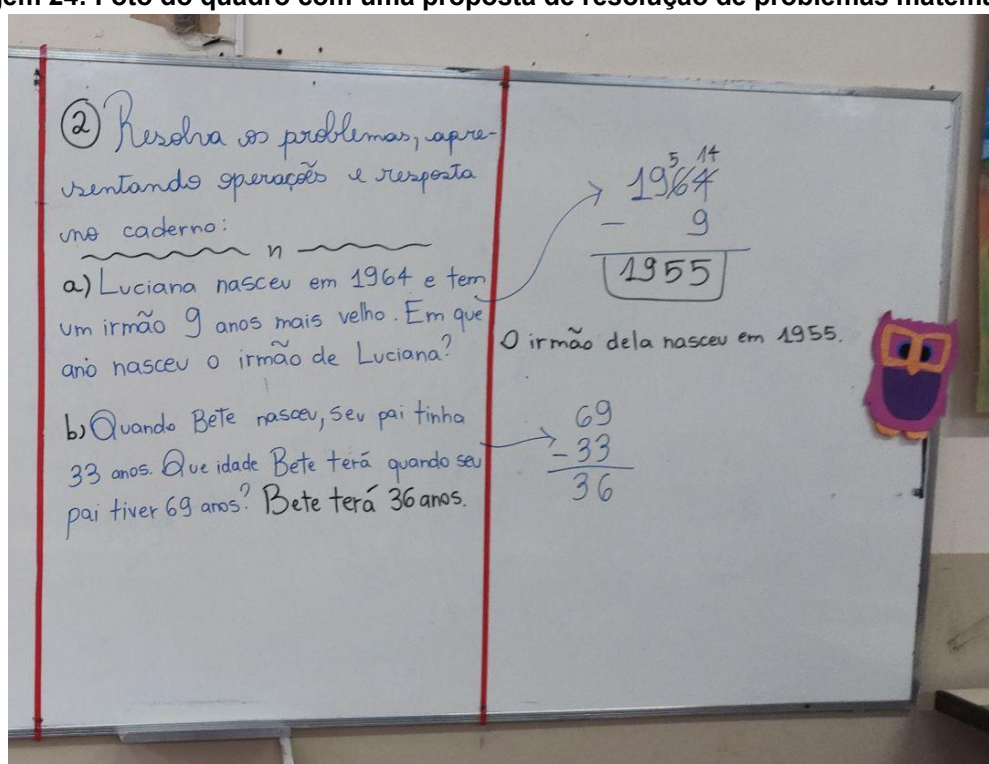 gem 24: Foto do quadro com uma proposta de resolução de problemas matemá
② Resolva os problemas, apre-
sentando operações e resposta
no caderno:
n
a) Luciana nasceu em 1964 e tem
um irmão 9 anos mais velho. Em que
ano nasceu o irmão de Luciana?
b) Quando Bete nasceu, seu pai tinha
33 anos. Que idade Bete terá quando seu
pai tiver 69 anos? Bete terá 36 anos.
5 14
1964
- 9
1955
O irmão dela nasceu em 1955.
69
- 33
36